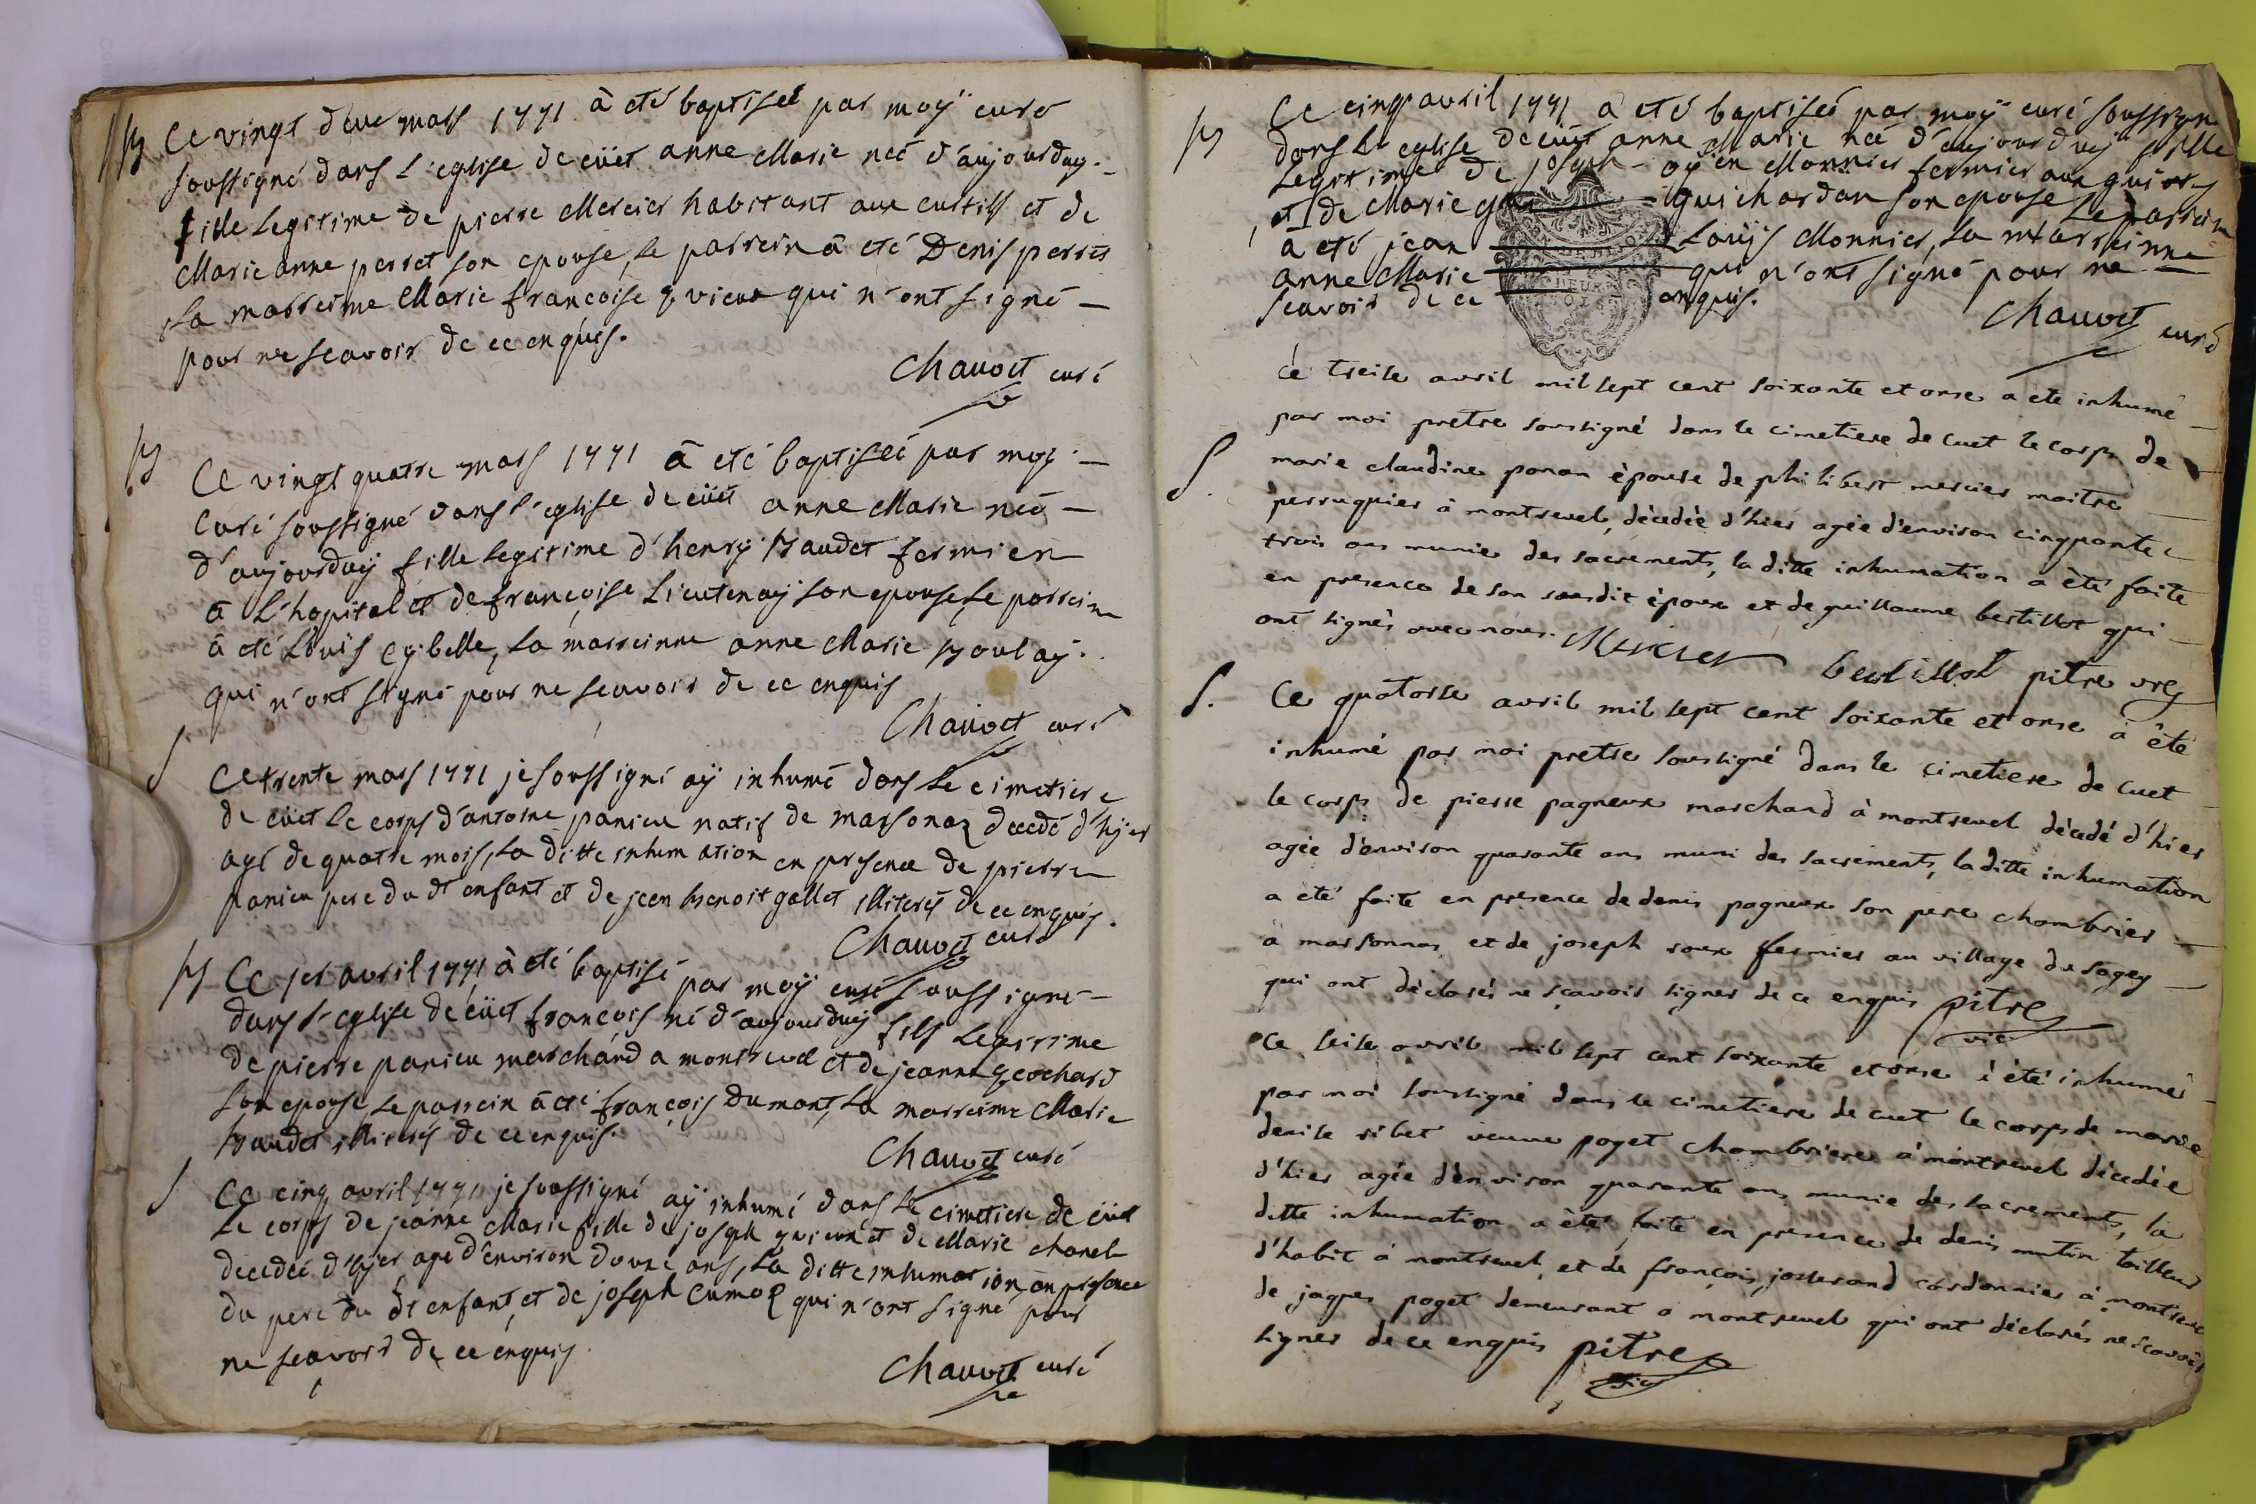 B Ce vingt deux mars 1771 à eté baptiseé par moÿ curé
soussigné dans l'eglise de cüet anne Marie neé d'aujourduy
fille legitime de pierre Mercier habitant aux curtils et de
Marie anne perret son epouse, le parrein à eté Denis perret
la marreinne Marie francoise qui n'ont signé
pour ne scavoir de ce enquis.
Chauvet curé
B
Ce vingt quatre mars 1771 à eté baptiseé par moÿ
curé soussigné dans l'eglise de cüet anne Marie neé
d'aujourduÿ fille legitime d'henrÿ Baudet fermier
à l'hopital et de françoise Lieutenaÿ son epouse, le parrein
à eté Louïs la marreinne anne Marie
qui n'ont signé pour ne scavoir de ce enquis
Chauvet curé
S
Ce trente mars 1771 je soussigné aÿ inhumé dans le cimetiere
de cüet le corps d'antoine panieu natif de marsonaz decedé d'hÿer
agé de quatre mois, la ditte inhumation en presence de pierre
panieu pere du dt enfant et de jean benoit gallet illiterés de ce enquis.
Chauvet curé
B Ce 1er avril 1771 à eté baptisé par moÿ curé soussigné
dans l'eglise de cüet françois né d'aujourduÿ fils legitime
de pierre panieu marchand a montrevel et de jeanne
son epouse, le parrein à eté françois dumont, la marreinne Marie
Baudet illiterés de ce enquis.
Chauvet curé
S
Ce cinq avril 1771 je soussigné aÿ inhumé dans le cimetiere de cüet
le corps de jeanne Marie fille de joseph et de Marie chanel
decedeé d'hÿer agé d'environ douze ans, la ditte inhumation en presence
du pere du dt enfant, et de joseph qui n'ont signé pour
ne scavoir de ce enquis.
Chauvet curé
B
Ce cinq avril 1771 a eté baptiseé par moÿ curé soussigné
dans l'eglise de cüet anne Marie neé d'aujourduÿ fille
legitime de joseph Monnier fermier aux
et de Marie guichardan son epouse, le parrein
à eté jean Louÿs Monnier, la marreinne
anne Marie qui n'ont signé pour ne
scavoir de ce enquis.
Chauvet curé
S.
ce treile avril mil sept cent soixante et onse a ete inhumé
par moi pretre soussigné dans le cimetiere de cuet le corps de
marie claudine ponan épouse de philibert mercier maitre
perruquier à montrevel, décedée d'hier agée d'environ cinquante
trois ans munie des sacrements, la ditte inhumation a èté faite
en presence de son susdit époux et de guillaume bertillot qui
ont signés avec nous. Mercier bertillot pitre vic
S.
Ce quatorse avril mil sept cent soixante et onse à èté
inhumé par moi pretre soussigné dans le cimetiere de cuet
le corps de pierre pagneux marchand à montrevel décedé d'hier
agée d'environ quarante ans muni des sacrements, la ditte inhumation
a eté faite en presence de denis pagneux son pere chambrier
à marsonnas et de joseph roux fermier au village du sagey
qui ont déclarés ne sçavoir signer de ce enquis pitre
vic
Ce seile avril mil sept cent soixante et onse à été inhumé
par moi soussigné dans le cimetiere de cuet le corps de marie
denise ribet veuve poget chambriere à montrevel décedée
d'hier agée d'environ quarante ans munie des sacrements, la
ditte inhumation a èté faite en presence de denis mutin tailleur
d'habit à montrevel, et de françois josserand cordonnier à montrevel
de jaques poget demeurant à montrevel qui ont déclarés ne scavoir
signer de ce enquis pitre
vic